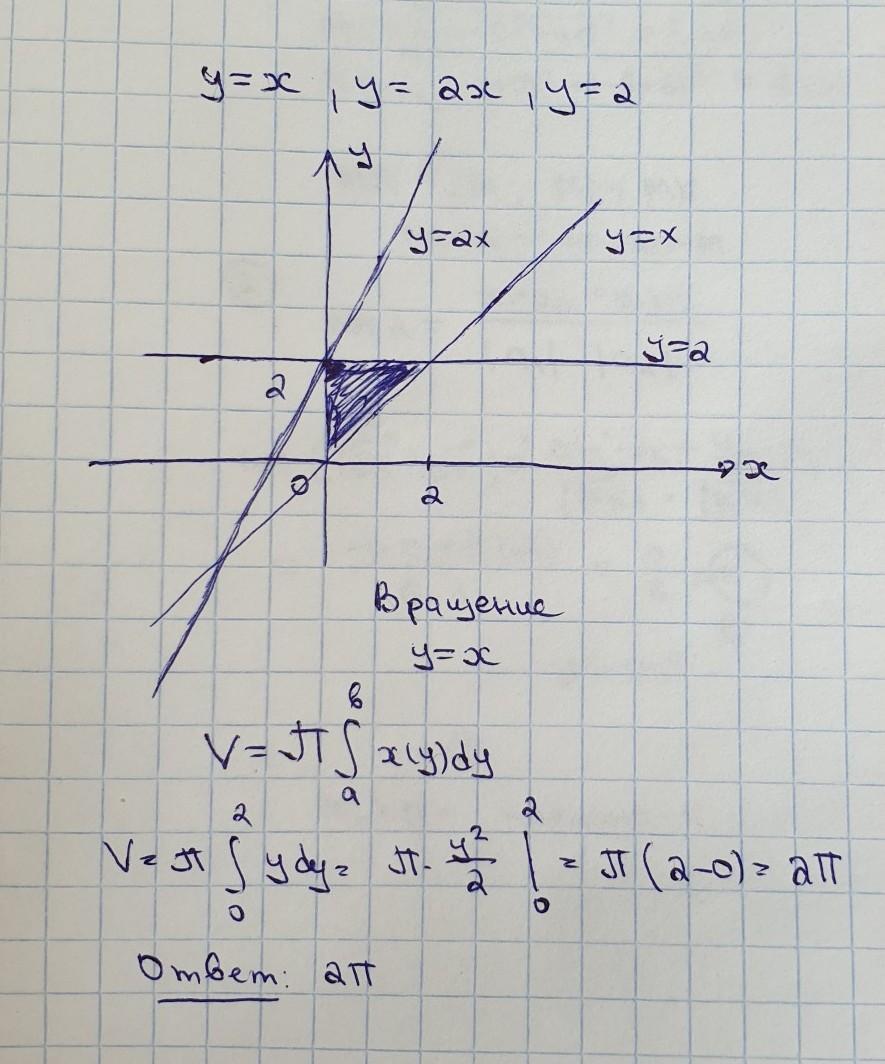 y=x , y= 2x , y=2
y
y=2x
y=x
y=2
2
0
2
x
Вращение
y=x
V= π∫ₐᵇ x(y)dy
V= π ∫₀² ydy= π· y²/2 |₀² = π(2-0)= 2π
Ответ: 2π